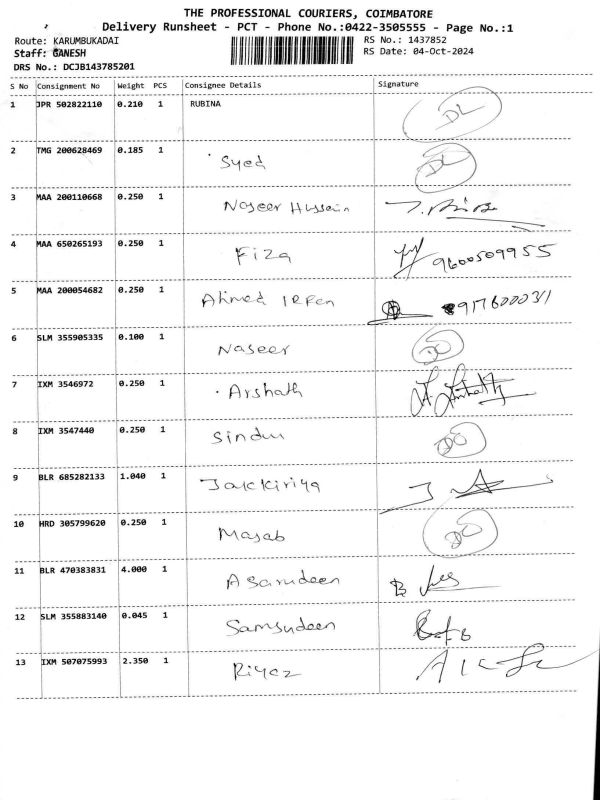 THE PROFESSIONAL COURIERS, COIMBATORE
Delivery Runsheet - PCT - Phone No.:0422-3505555 - Page No.:1
Route: KARUMBUKADAI RS No.: 1437852
Staff: GANESH RS Date: 04-Oct-2024
DRS No.: DCJB143785201
S No Consignment No Weight PCS Consignee Details Signature
1 JPR 502822110 0.210 1 RUBINA DL
2 TMG 200628469 0.185 1 Syed DL
3 MAA 200110668 0.250 1 Naseer Hussain
4 MAA 650265193 0.250 1 Fiza 9600509955
5 MAA 200054682 0.250 1 Ahmed IRFan
6 SLM 355905335 0.100 1 Naseer
7 IXM 3546972 0.250 1 Arshath
8 IXM 3547440 0.250 1 Sindhu
9 BLR 685282133 1.040 1 Jakkiriya
10 HRD 305799620 0.250 1 Masab
11 BLR 470383831 4.000 1 Asarudeen
12 SLM 355883140 0.045 1 Samsudeen
13 IXM 507075993 2.350 1 Riyaz